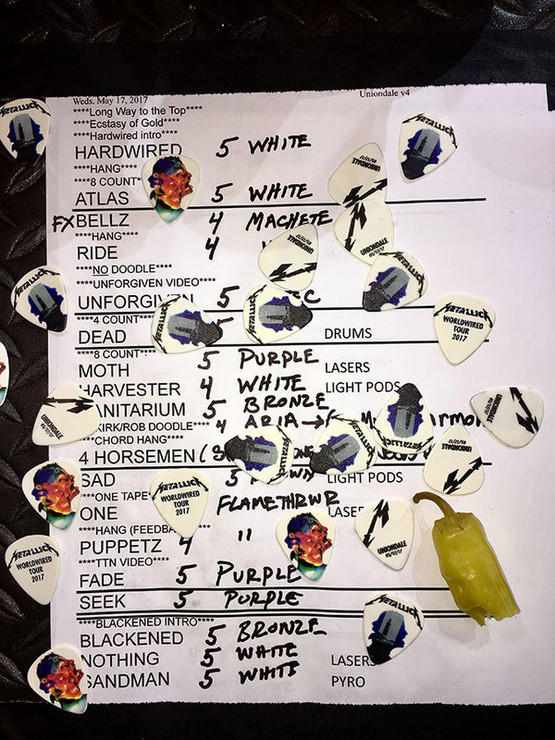 Weds. May 17, 2017 Uniondale v4
****Long Way to the Top****
****Ecstasy of Gold****
****Hardwired intro****
HARDWIRED 5 WHITE
****HANG****
****8 COUNT*
ATLAS 5 WHITE
FX BELLZ 4 MACHETE
****HANG****
RIDE 4
****NO DOODLE****
****UNFORGIVEN VIDEO****
UNFORGIVEN 5 C
****4 COUNT****
DEAD DRUMS
****8 COUNT****
MOTH 5 PURPLE LASERS
HARVESTER 4 WHITE LIGHT PODS
SANITARIUM 5 BRONZE
KIRK/ROB DOODLE**** 4 ARIA →
****CHORD HANG****
4 HORSEMEN
SAD 5 LIGHT PODS
***ONE TAPE*
ONE FLAMETHRWR LASERS
****HANG (FEEDBA
PUPPETZ 4 "
****TTN VIDEO****
FADE 5 PURPLE
SEEK 5 PURPLE
****BLACKENED INTRO****
BLACKENED 5 BRONZE
NOTHING 5 WHITE LASERS
SANDMAN 5 WHITE PYRO
METALLICA
METALLICA
WORLDWIRED
TOUR
2017
METALLICA
WORLDWIRED
TOUR
2017
METALLICA
WORLDWIRED
TOUR
2017
UNIONDALE
05/17/17
UNIONDALE
05/17/17
UNIONDALE
05/17/17